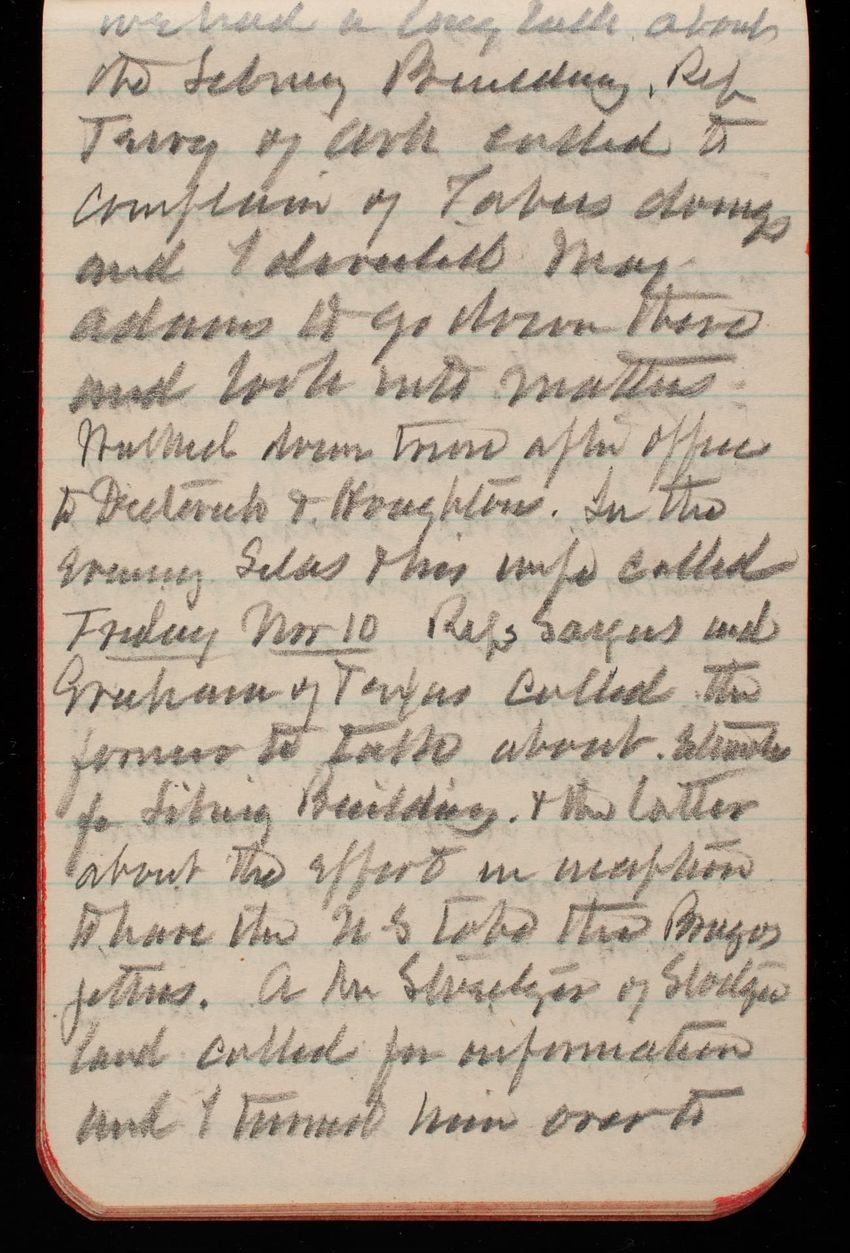 we had a long talk about
the Library Building. Rep
Terry of Ark called to
complain of Tabers doings
and I directed Maj
Adams to go down there
and look into matters.
Walked down town after office
to Diederich & Houghtons. In the
evening Silas & his wife called
Friday Nov 10 Reps Sayers and
Graham of Texas called the
former to talk about
fo Library Building. & the latter
about the effort in inception
to have the U S take the Brazos
jetties. A Mr of
land called for information
and I turned him over to